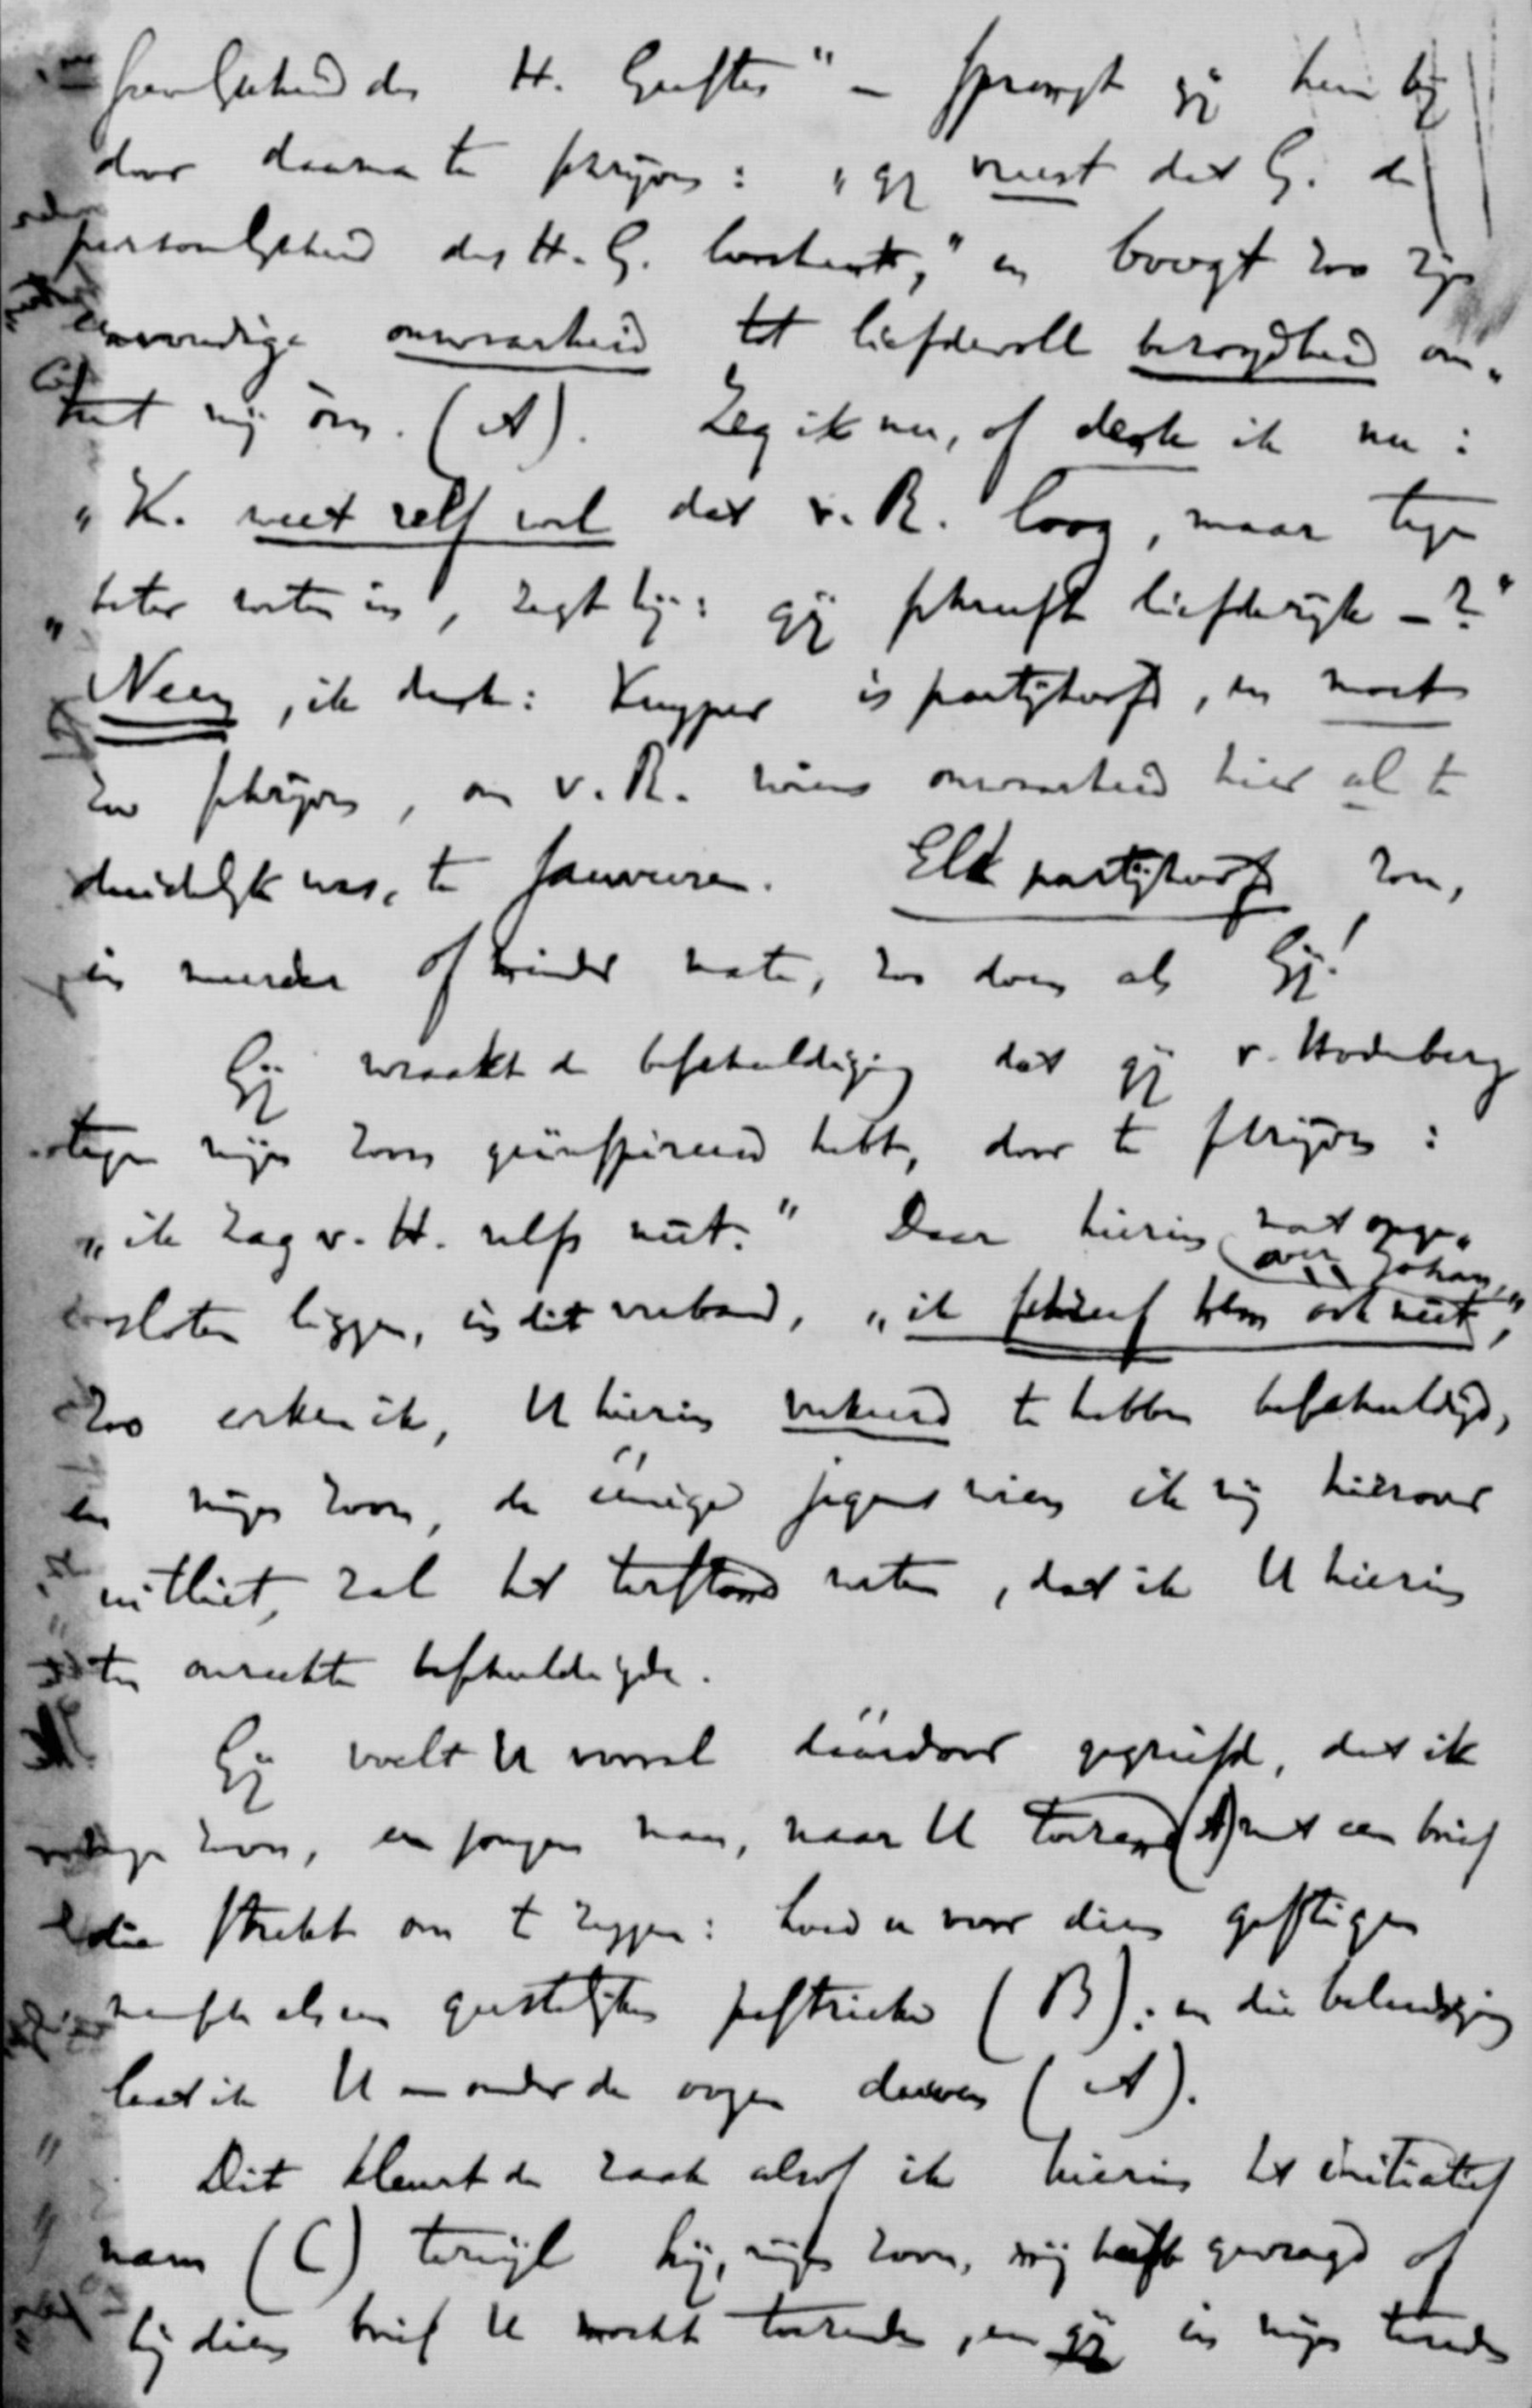 des H. Geestes" — springt gij hem bij
door daarna te schrijven: "gij weest dat G. de
persoonlijkheid des H. G. loochent," en buigt zoo zijn
onwaarheid tot liefdevolle bezorgdheid om-
mij om. (A). Zeg ik nu, of denk ik nu:
"K. weet zelf wel dat v. R. loog, maar tegen
"beter weten in, zegt hij: gij schreeft liefderijk —?"
Neen, ik denk: Kuyper is partijhoofd, en moet
zoo schrijven, om v. R. wiens onwaarheid hier al te
duidelijk was, te sauveeren. Elk partijhoofd zou,
in meerder of minder mate, zoo doen als Gij!
Gij wraakt de beschuldiging dat gij v. Hodenberg
tegen mijn zoon geïnspireerd hebt, door te schrijven:
"ik zag v. H. zelfs niet." Daar hierin moet opge-
sloten liggen, in dit verband, "ik schreef hem over Johan ook niet,"
zoo erken ik, U hierin verkeerd te hebben beschuldigd,
en mijn zoon, de éénige jegens wien ik mij hierover
uitliet, zal het terstond weten, dat ik U hierin
ten onrechte beschuldigde.
Gij voelt U vooral dáárdoor gegriefd, dat ik
mijn zoon, een jongen man, naar U toezend (A) met een brief
die strekt om te zeggen: hoed u voor dien giftigen
als een geestelijken (B); en die beleediging
laat ik U onder de oogen duwen (A).
Dit kleurt de zaak alsof ik hierin het initiatief
nam (C) terwijl hij, mijn zoon, mij heeft gevraagd of
hij dien brief U mocht toezenden, en gij in mijn